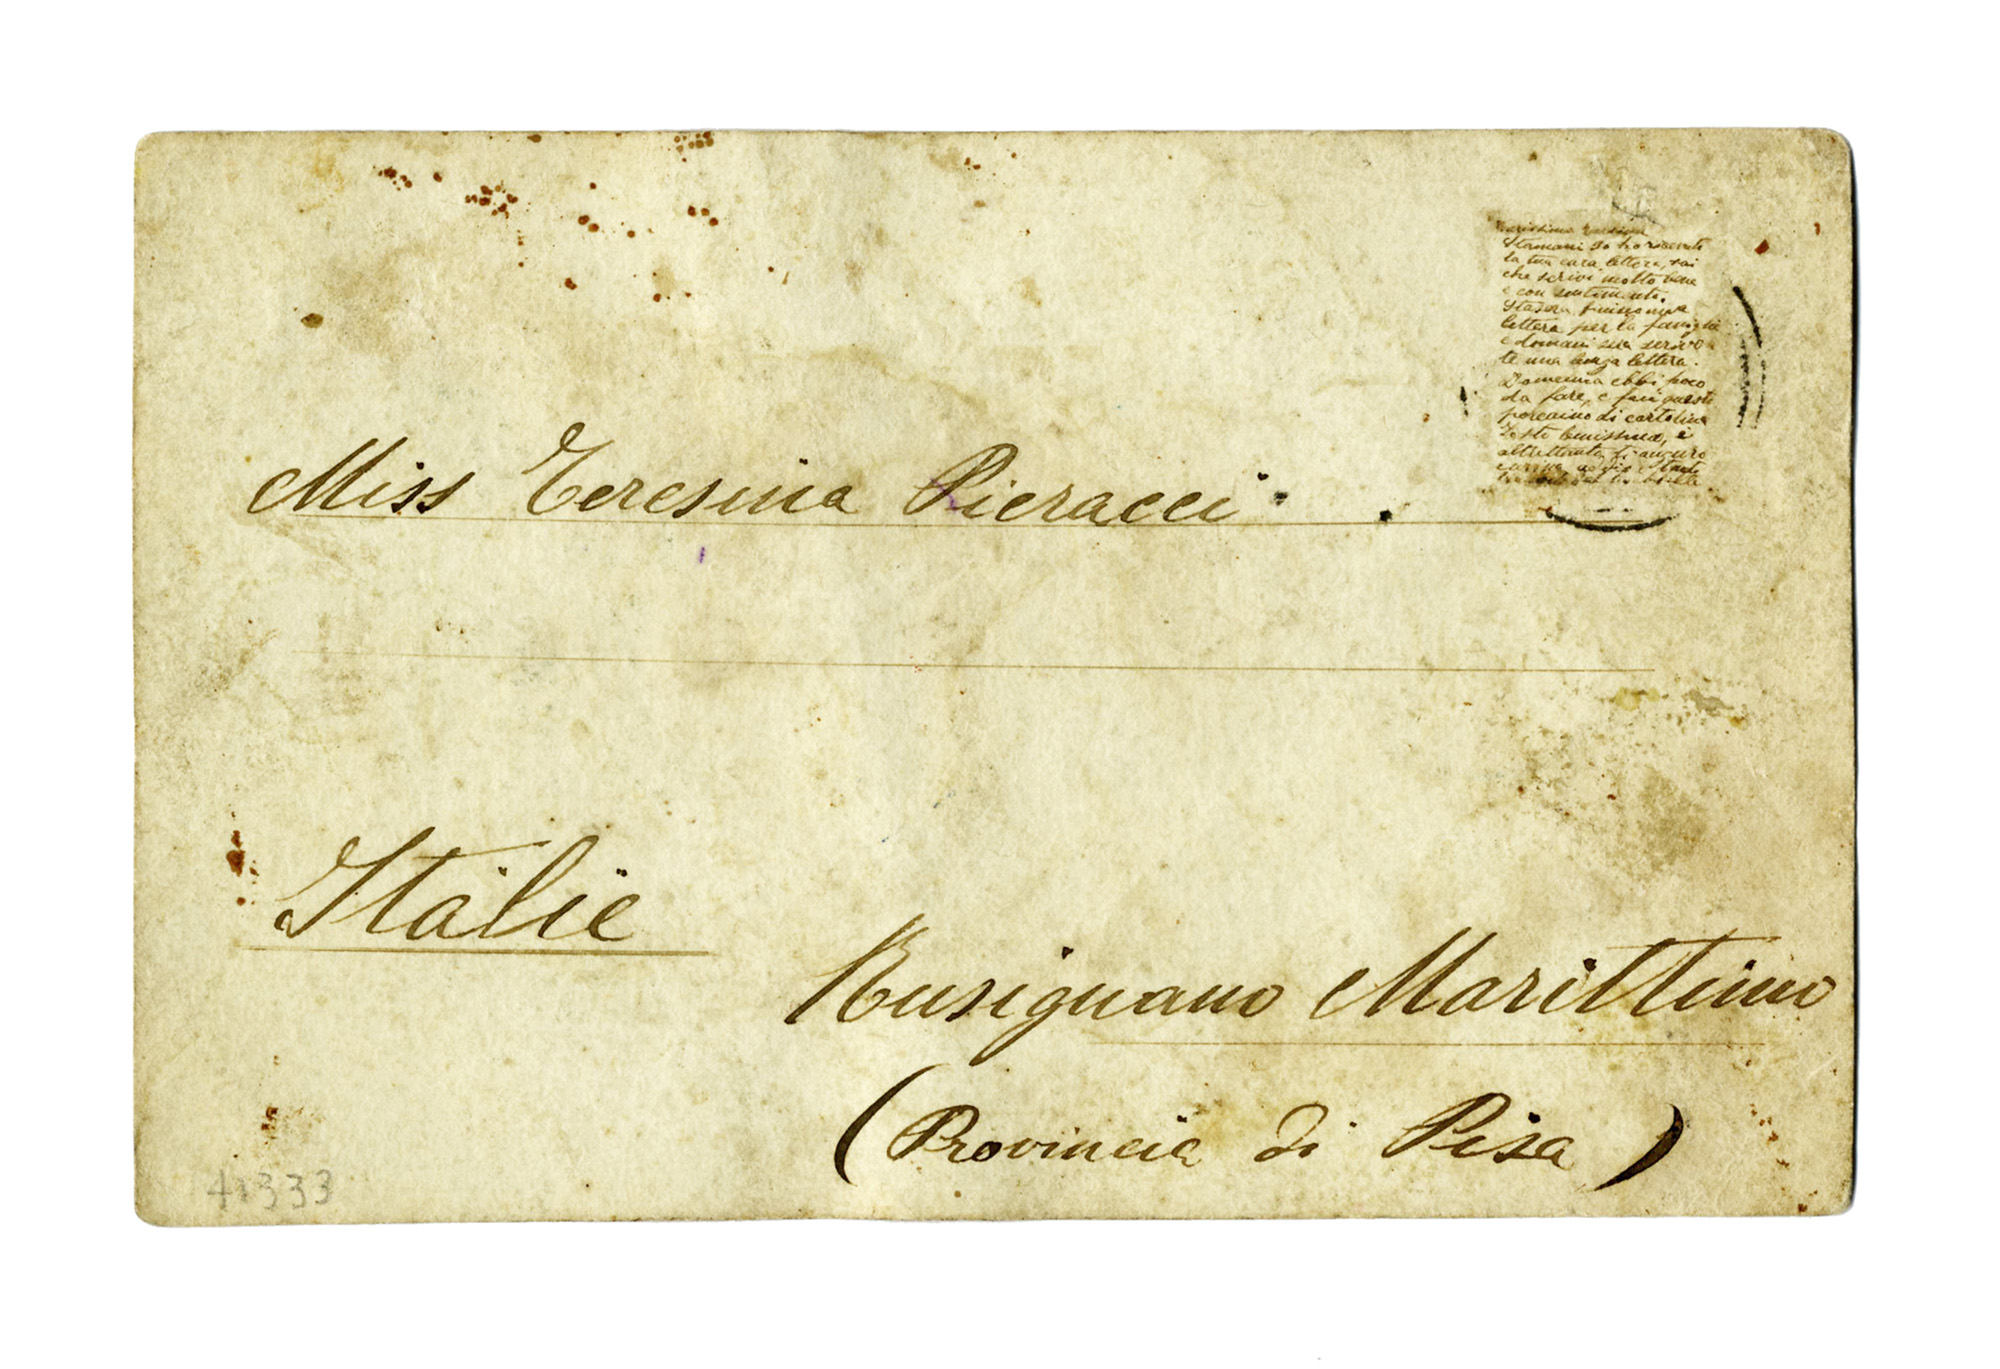 Stamani Io ho ricevuto
la tua cara lettera, sai
che scrivi molto bene
e con sentimento.
Stasera finisco una
lettera per la famiglia
e domani sera scrivo
te una lunga lettera.
Domenica ebbi poco
da fare, e feci questo
porcaino di cartolina
Io sto benissimo, e
altrettanto ti auguro
Miss Teresina Pieracci
Italie
Rusignano Marittimo
(Provincia di Pisa)
41333